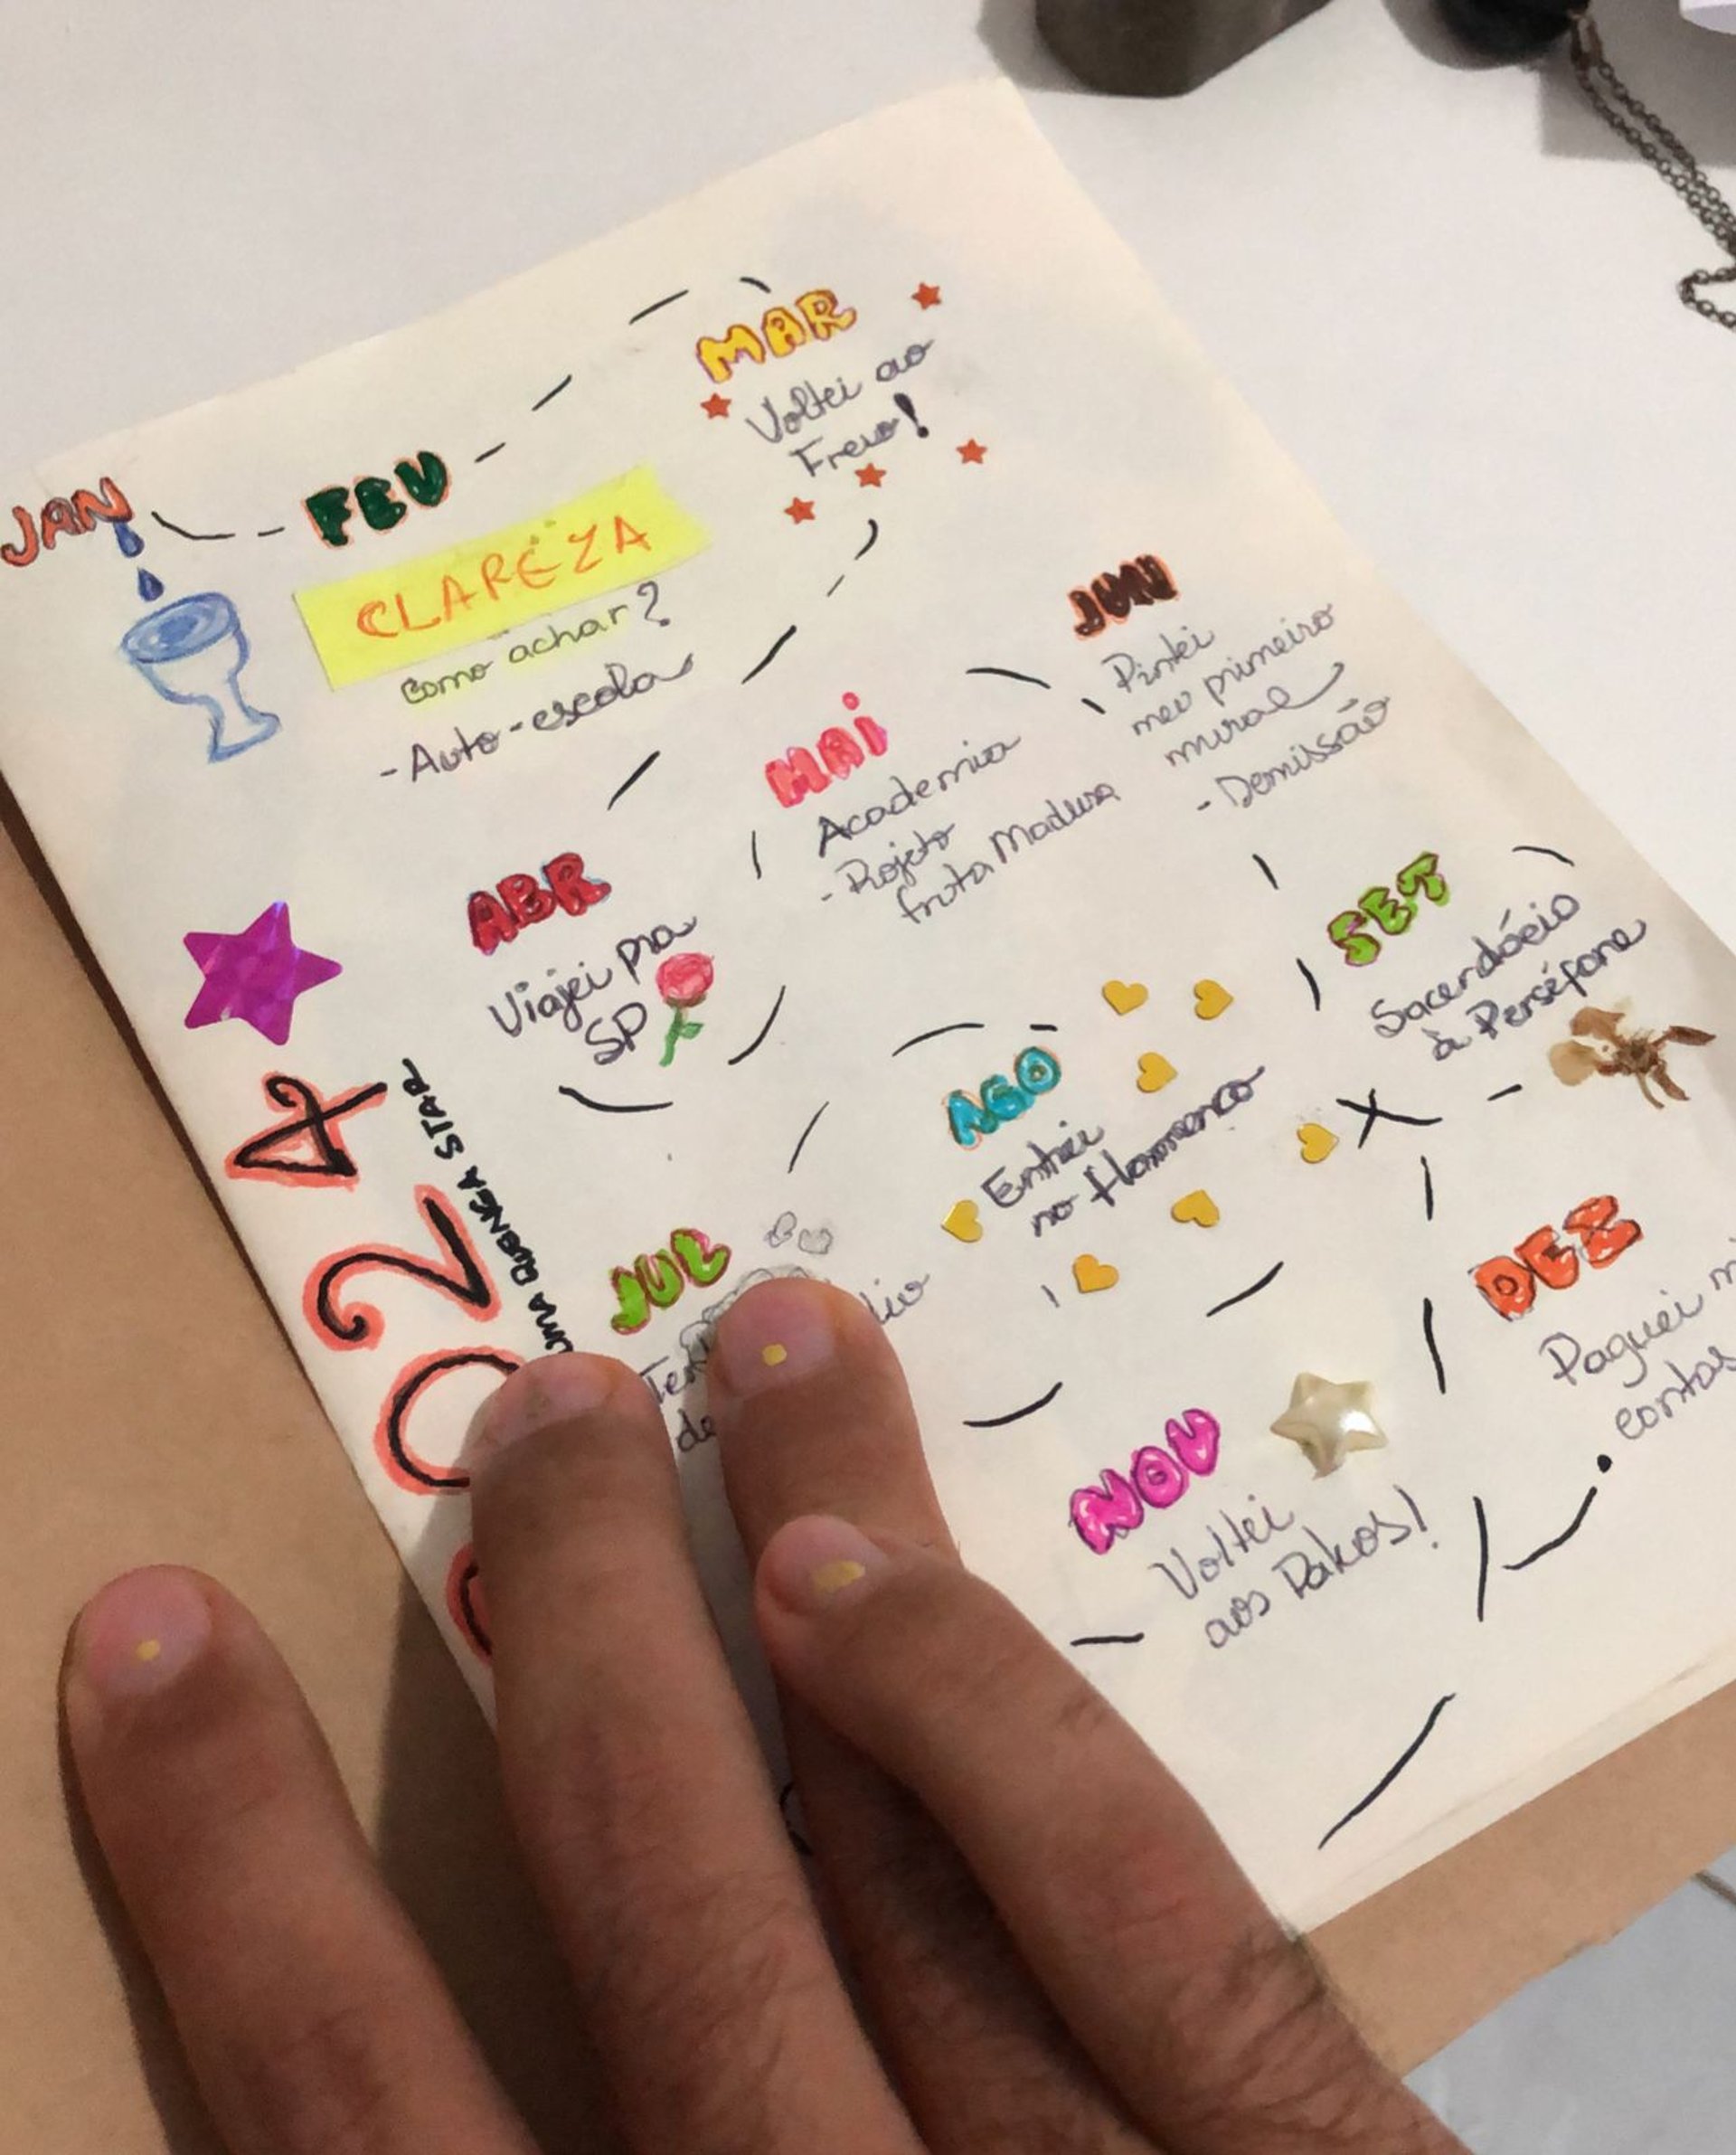 JAN
FEV
CLAREZA
como achar?
- Auto-escola
MAR
Voltei ao
Frevo!
ABR
Viajei pra
SP
MAI
Academia
- Projeto
fruta Madura
JUN
Pintei
meu primeiro
mural
- Demissão
JUL
AGO
Entrei
no flamenco
SET
Sacerdócio
à Perséfone
NOV
Voltei
aos Palcos!
DEZ
Paguei
contas
2024
UMA QUENGA STAR